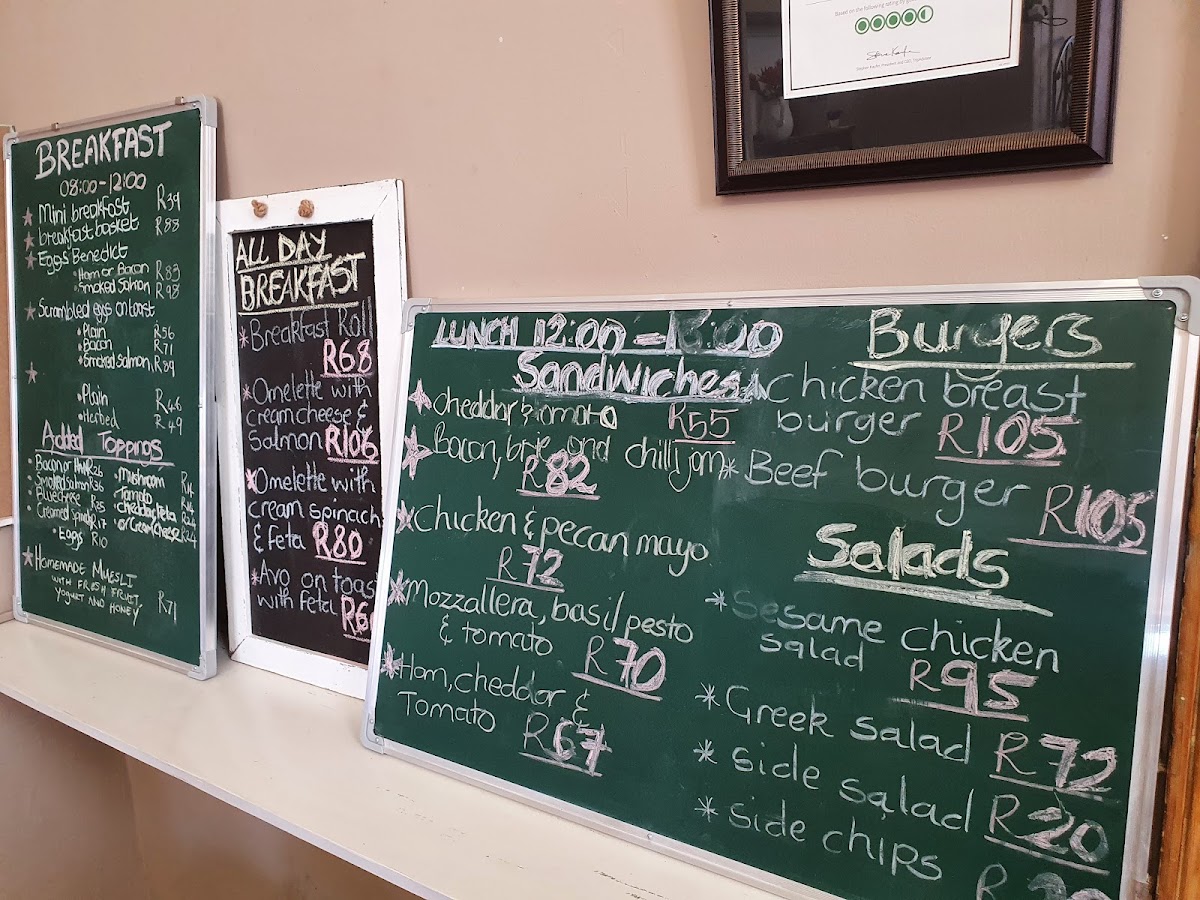 Based on the following rating by
BREAKFAST
08:00-12:00
Mini breakfast R39
breakfast basket R88
Eggs Benedict
Ham or Bacon R83
Smoked Salmon R98
Scrambled eggs on toast
Plain R56
Bacon R71
Smoked Salmon R89
Plain R46
Herbed R49
Added Toppings
Bacon or R26
Smoked Salmon R36
Blue cheese R25
Creamed R17
Eggs R10
Mushroom
Tomato
cheddar, feta
or Cream Cheese
Homemade Muesli
with fresh fruit,
Yogurt and Honey R71
ALL DAY
BREAKFAST
Breakfast Roll
R68
Omelette with
cream cheese &
Salmon R106
Omelette with
cream spinach
& feta R80
Avo on toast
with feta
LUNCH 12:00 -
Sandwiches
cheddar & tomato R55
Bacon, brie, and chilli jam
R82
Chicken & pecan mayo
R72
Mozzallera, basil pesto
& tomato R70
Ham, cheddar &
Tomato R67
Burgers
Chicken breast
burger R105
Beef burger
R105
Salads
Sesame chicken
salad R95
Greek salad R72
side salad R20
side chips